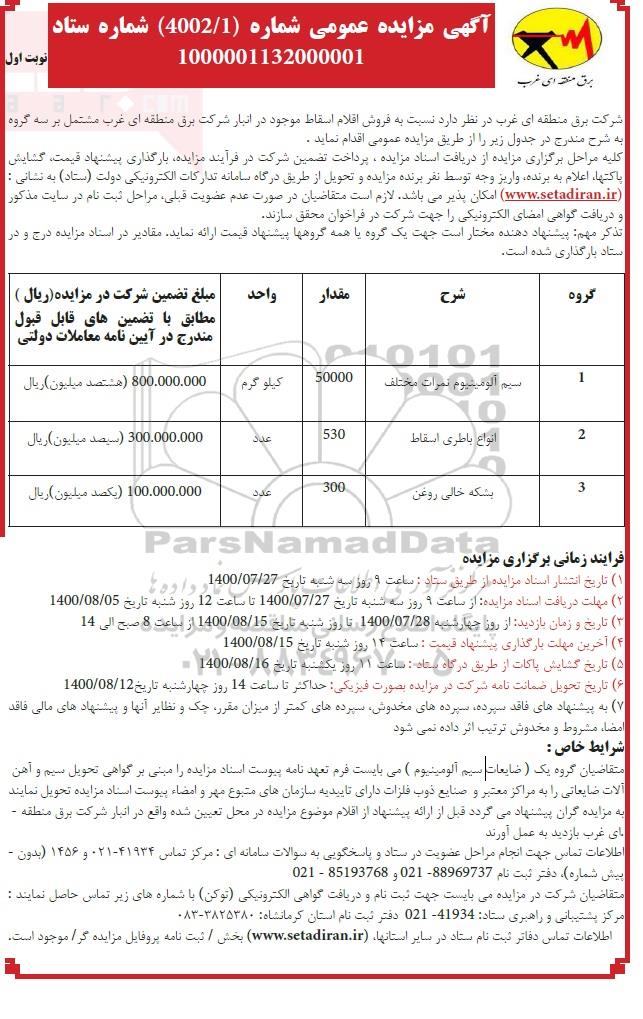 آگهی مزایده عمومی شماره (4002/1) شماره ستاد
1000001132000001
نوبت اول
برق منطقه ای غرب
شرکت برق منطقه ای غرب در نظر دارد نسبت به فروش اقلام اسقاط موجود در انبار شرکت برق منطقه ای غرب مشتمل بر سه گروه
به شرح مندرج در جدول زیر را از طریق مزایده عمومی اقدام نماید .
کلیه مراحل برگزاری مزایده از دریافت اسناد مزایده ، پرداخت تضمین شرکت در فرآیند مزایده، بارگذاری پیشنهاد قیمت، گشایش
پاکتها، اعلام به برنده، واریز وجه توسط نفر برنده مزایده و تحویل از طریق درگاه سامانه تدارکات الکترونیکی دولت (ستاد) به نشانی :
(www.setadiran.ir) امکان پذیر می باشد. لازم است متقاضیان در صورت عدم عضویت قبلی، مراحل ثبت نام در سایت مذکور
و دریافت گواهی امضای الکترونیکی را جهت شرکت در فراخوان محقق سازند.
تذکر مهم: پیشنهاد دهنده مختار است جهت یک گروه یا همه گروهها پیشنهاد قیمت ارائه نماید. مقادیر در اسناد مزایده درج و در
ستاد بارگذاری شده است.
گروه شرح مقدار واحد مبلغ تضمین شرکت در مزایده(ریال )
مطابق با تضمین های قابل قبول
مندرج در آیین نامه معاملات دولتی
1 سیم آلومینیوم نمرات مختلف 50000 کیلو گرم 800.000.000 (هشتصد میلیون)ریال
2 انواع باطری اسقاط 530 عدد 300.000.000 (سیصد میلیون)ریال
3 بشکه خالی روغن 300 عدد 100.000.000 (یکصد میلیون)ریال
ParsNamadData
فرایند زمانی برگزاری مزایده
۱) تاریخ انتشار اسناد مزایده از طریق ستاد : ساعت ۹ روز سه شنبه تاریخ 1400/07/27
۲) مهلت دریافت اسناد مزایده: از ساعت ۹ روز سه شنبه تاریخ 1400/07/27 تا ساعت 12 روز شنبه تاریخ 1400/08/05
۳) تاریخ و زمان بازدید: از روز چهارشنبه 1400/07/28 تا روز شنبه تاریخ 1400/08/15 از ساعت 8 صبح الی 14
۴) آخرین مهلت بارگذاری پیشنهاد قیمت : ساعت ۱۴ روز شنبه تاریخ 1400/08/15
۵) تاریخ گشایش پاکات از طریق درگاه ستاد : ساعت ۱۱ روز یکشنبه تاریخ 1400/08/16
۶) تاریخ تحویل ضمانت نامه شرکت در مزایده بصورت فیزیکی: حداکثر تا ساعت 14 روز چهارشنبه تاریخ1400/08/12
۷) به پیشنهاد های فاقد سپرده، سپرده های مخدوش، سپرده های کمتر از میزان مقرر، چک و نظایر آنها و پیشنهاد های مالی فاقد
امضا، مشروط و مخدوش ترتیب اثر داده نمی شود
شرایط خاص :
متقاضیان گروه یک ( ضایعات سیم آلومینیوم ) می بایست فرم تعهد نامه پیوست اسناد مزایده را مبنی بر گواهی تحویل سیم و آهن
آلات ضایعاتی را به مراکز معتبر و صنایع ذوب فلزات دارای تاییدیه سازمان های متبوع مهر و امضاء پیوست اسناد مزایده تحویل نمایند
به مزایده گران پیشنهاد می گردد قبل از ارائه پیشنهاد از اقلام موضوع مزایده در محل تعیین شده واقع در انبار شرکت برق منطقه -
.ای غرب بازدید به عمل آورند
اطلاعات تماس جهت انجام مراحل عضویت در ستاد و پاسخگویی به سوالات سامانه ای : مرکز تماس ۴۱۹۳۴-۰۲۱ و ۱۴۵۶ (بدون -
پیش شماره)، دفتر ثبت نام 88969737- 021 و 85193768 - 021
متقاضیان شرکت در مزایده می بایست جهت ثبت نام و دریافت گواهی الکترونیکی (توکن) با شماره های زیر تماس حاصل نمایند :
مرکز پشتیبانی و راهبری ستاد: 41934- 021 دفتر ثبت نام استان کرمانشاه: ۳۸۲۵۳۸۰-۰۸۳
اطلاعات تماس دفاتر ثبت نام ستاد در سایر استانها، (www.setadiran.ir) بخش / ثبت نامه پروفایل مزایده گر/ موجود است.